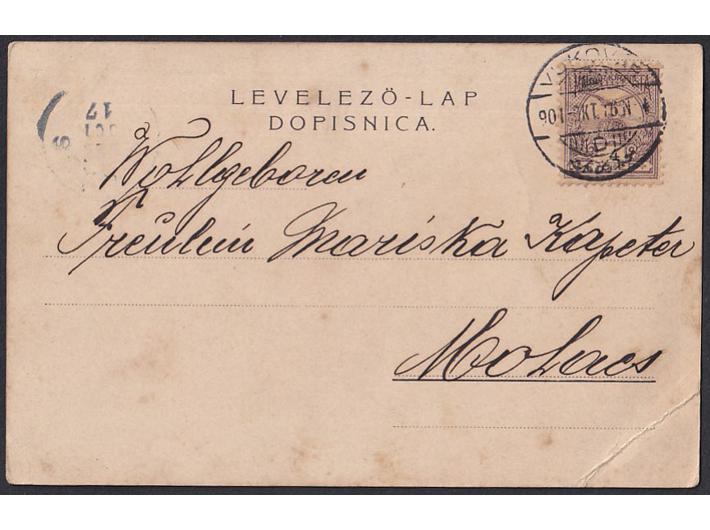 LEVELEZÖ-LAP
DOPISNICA.
Wohlgeboren
Freulein Mariska Kapeter
Mohacs
VUKOV
901
17